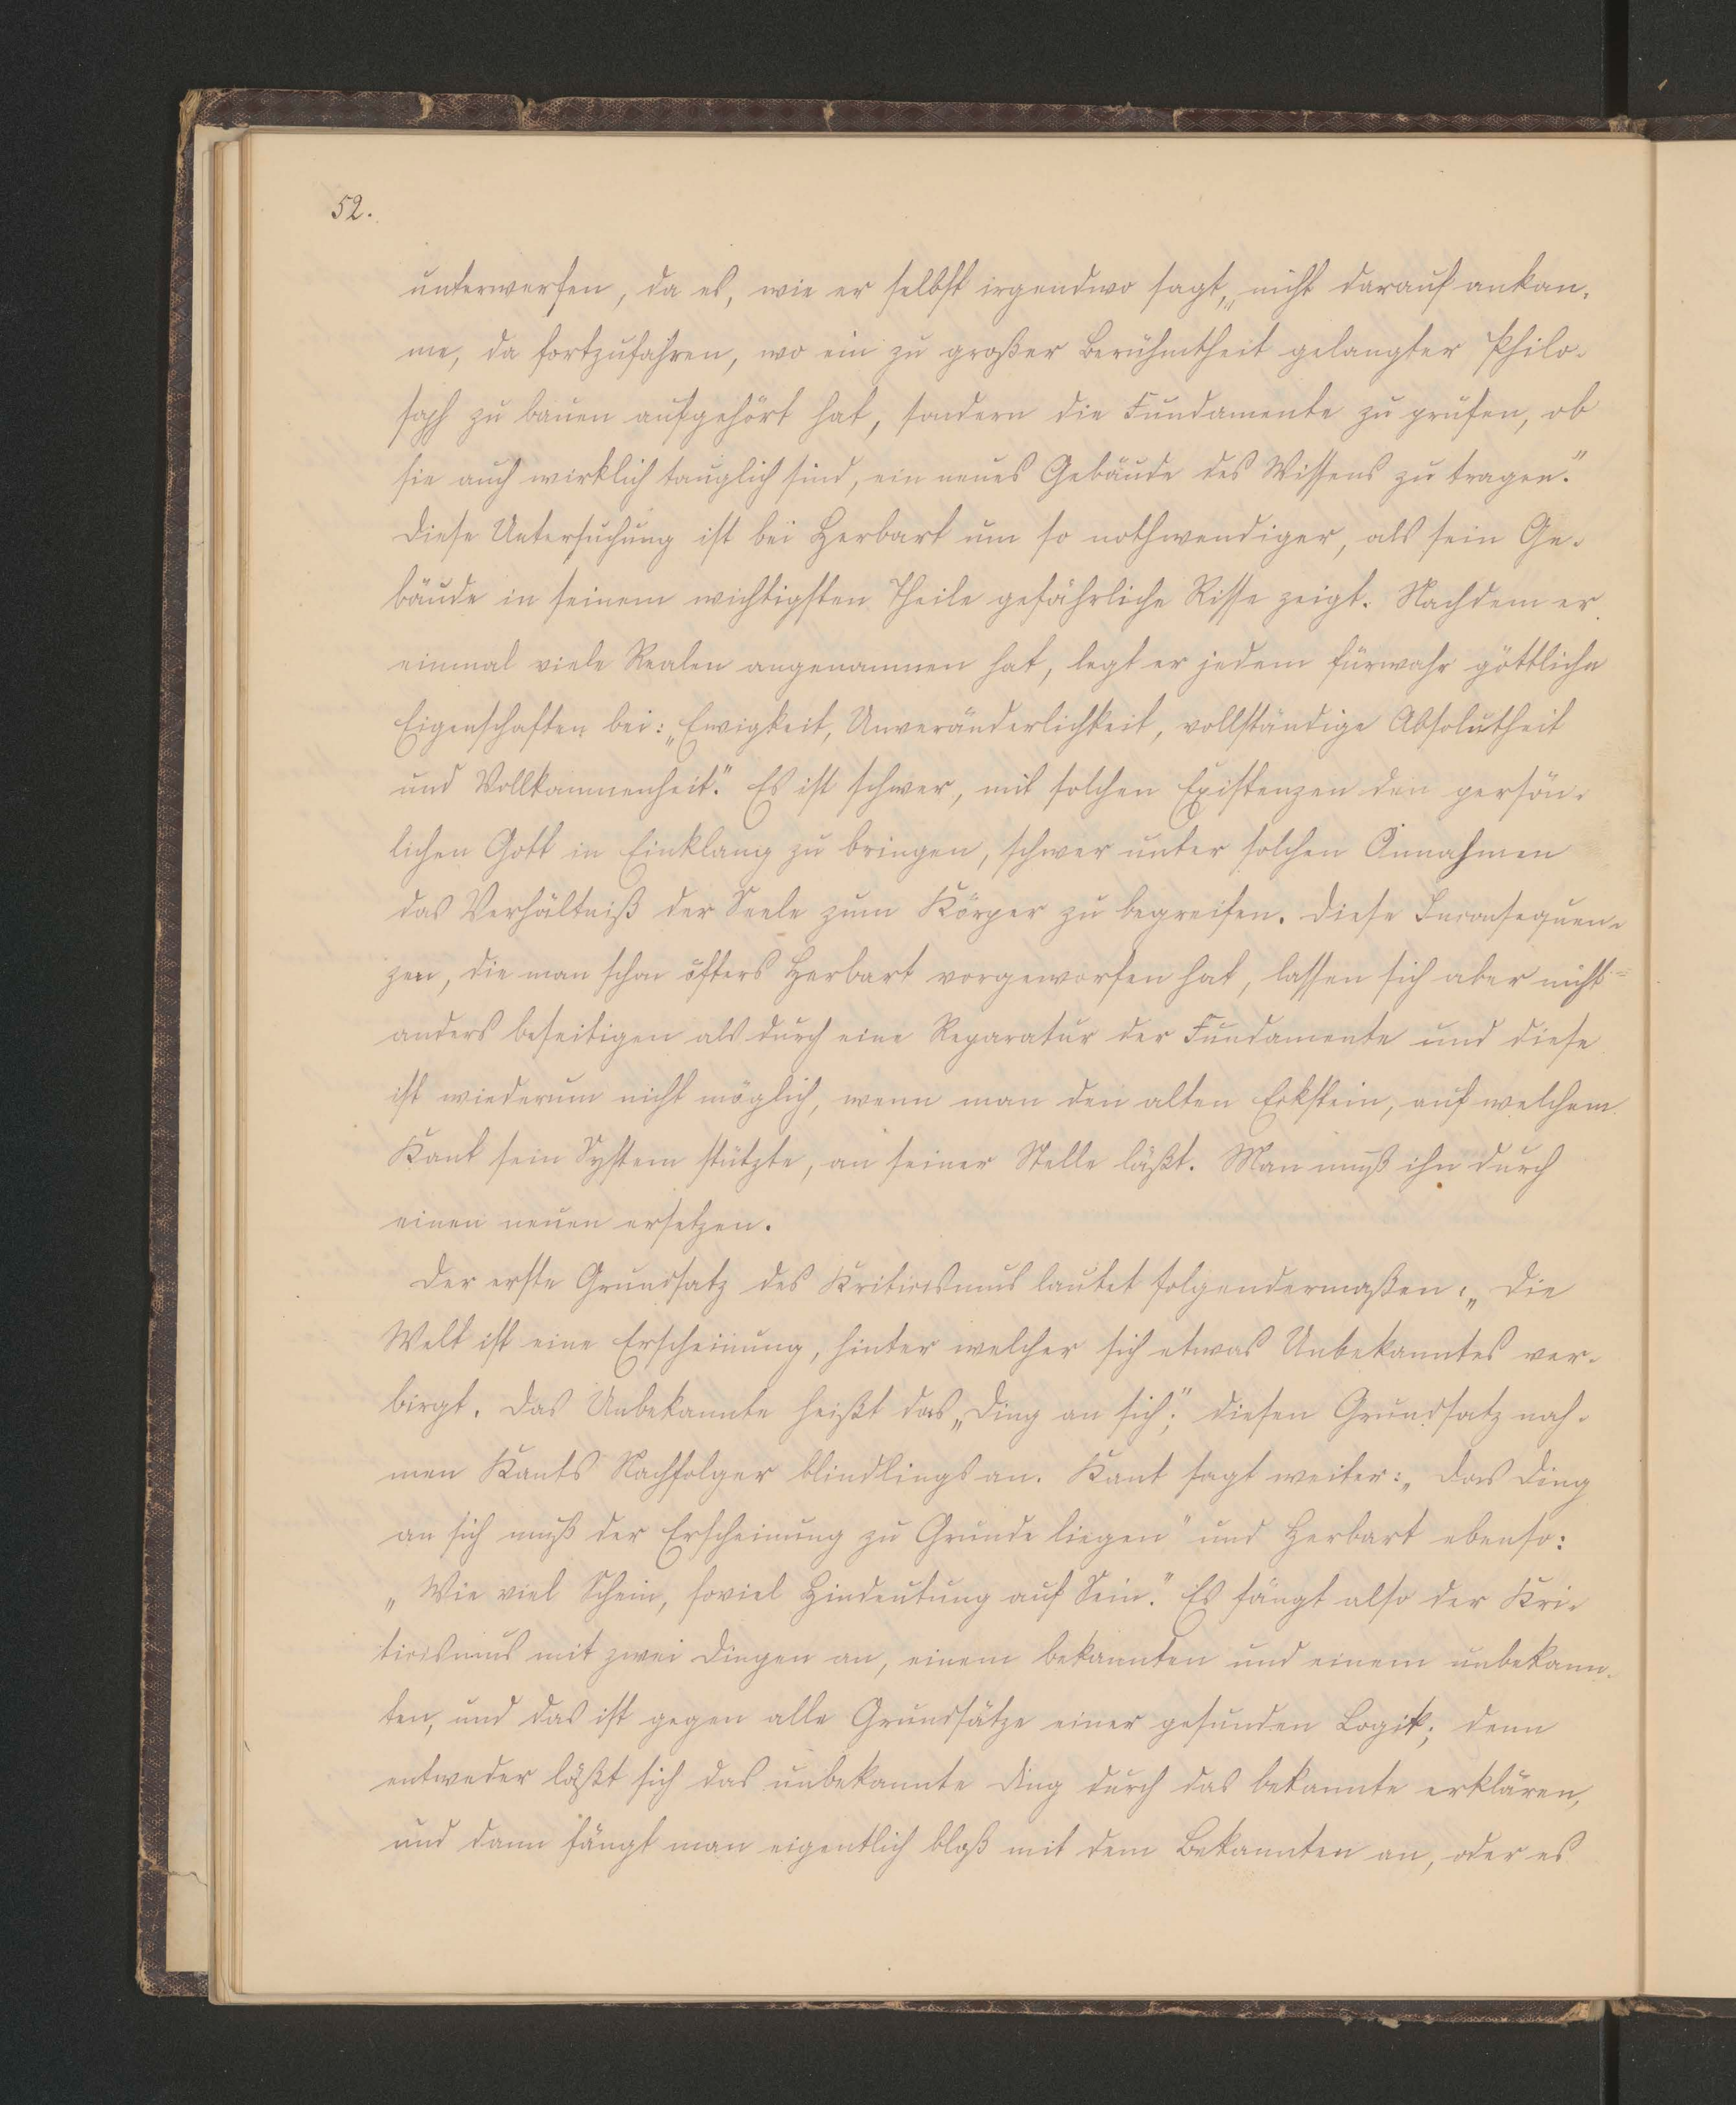 52.
unterwerfen, da es, wie er selbst irgendwo sagt, „nicht darauf ankom-
me, da fortzufahren, wo ein zu großer Berühmtheit gelangter Philo-
soph zu bauen aufgehört hat, sondern die Fundamente zu prüfen, ob
sie auch wirklich tauglich sind, ein neues Gebäude des Wissens zu tragen."
Diese Untersuchung ist bei Herbart um so nothwendiger, als sein Ge-
bäude in seinem wichtigsten Theile gefährliche Risse zeigt. Nachdem er
einmal viele Realen angenommen hat, legt er jedem fürwahr göttliche
Eigenschaften bei: „Ewigkeit, Unveränderlichkeit, vollständige Absolutheit
und Vollkommenheit." Es ist schwer, mit solchen Existenzen den persön-
lichen Gott in Einklang zu bringen, schwer unter solchen Annahmen
das Verhältniß der Seele zum Körper zu begreifen. Diese Inconsequen-
zen, die man schon öfters Herbart vorgeworfen hat, lassen sich aber nicht
anders beseitigen als durch eine Reparatur der Fundamente und diese
ist wiederum nicht möglich, wenn man den alten Eckstein, auf welchem
Kant sein System stützte, an seiner Stelle läßt. Man muß ihn durch
einen neuen ersetzen.
Der erste Grundsatz des Kriticismus lautet folgendermaßen: „Die
Welt ist eine Erscheinung, hinter welcher sich etwas Unbekanntes ver-
birgt. Das Unbekannte heißt das „Ding an sich;" diesen Grundsatz nah-
men Kants Nachfolger blindlings an. Kant sagt weiter: „Das Ding
an sich muß der Erscheinung zu Grunde liegen" und Herbart ebenso:
„Wie viel Schein, soviel Hindeutung auf Sein." Es fängt also der Kri-
ticismus mit zwei Dingen an, einem bekannten und einem unbekann-
ten, und das ist gegen alle Grundsätze einer gesunden Logik; denn
entweder läßt sich das unbekannte Ding durch das bekannte erklären,
und dann fängt man eigentlich bloß mit dem Bekannten an, oder es